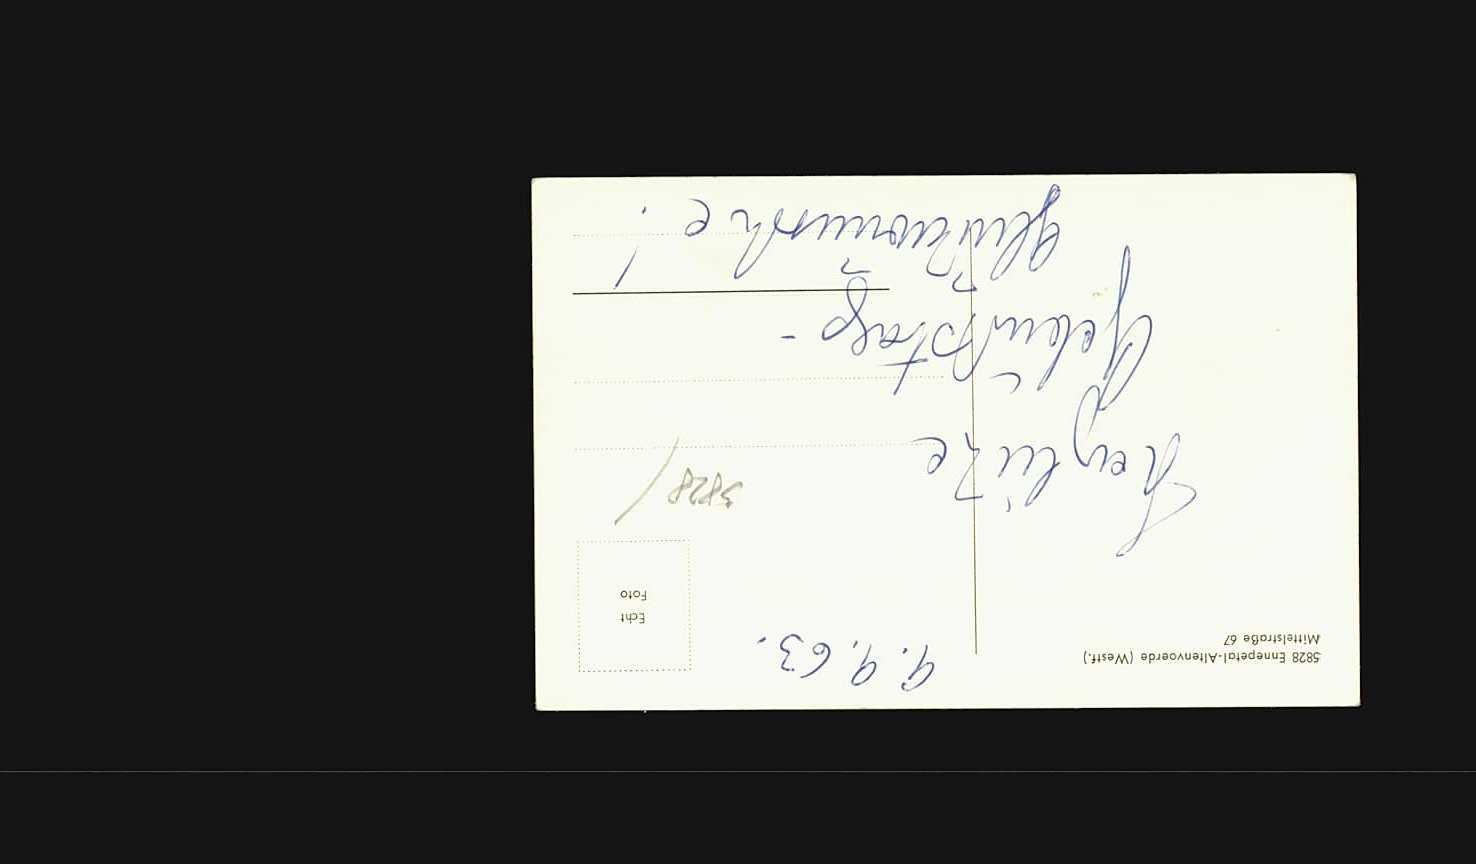 5828 Ennepetal-Altenvoerde (Westf.)
Mittelstraße 67
9. 9. 63.
Echt
Foto
5828
Herzliche
Geburtstags-
glückwünsche!